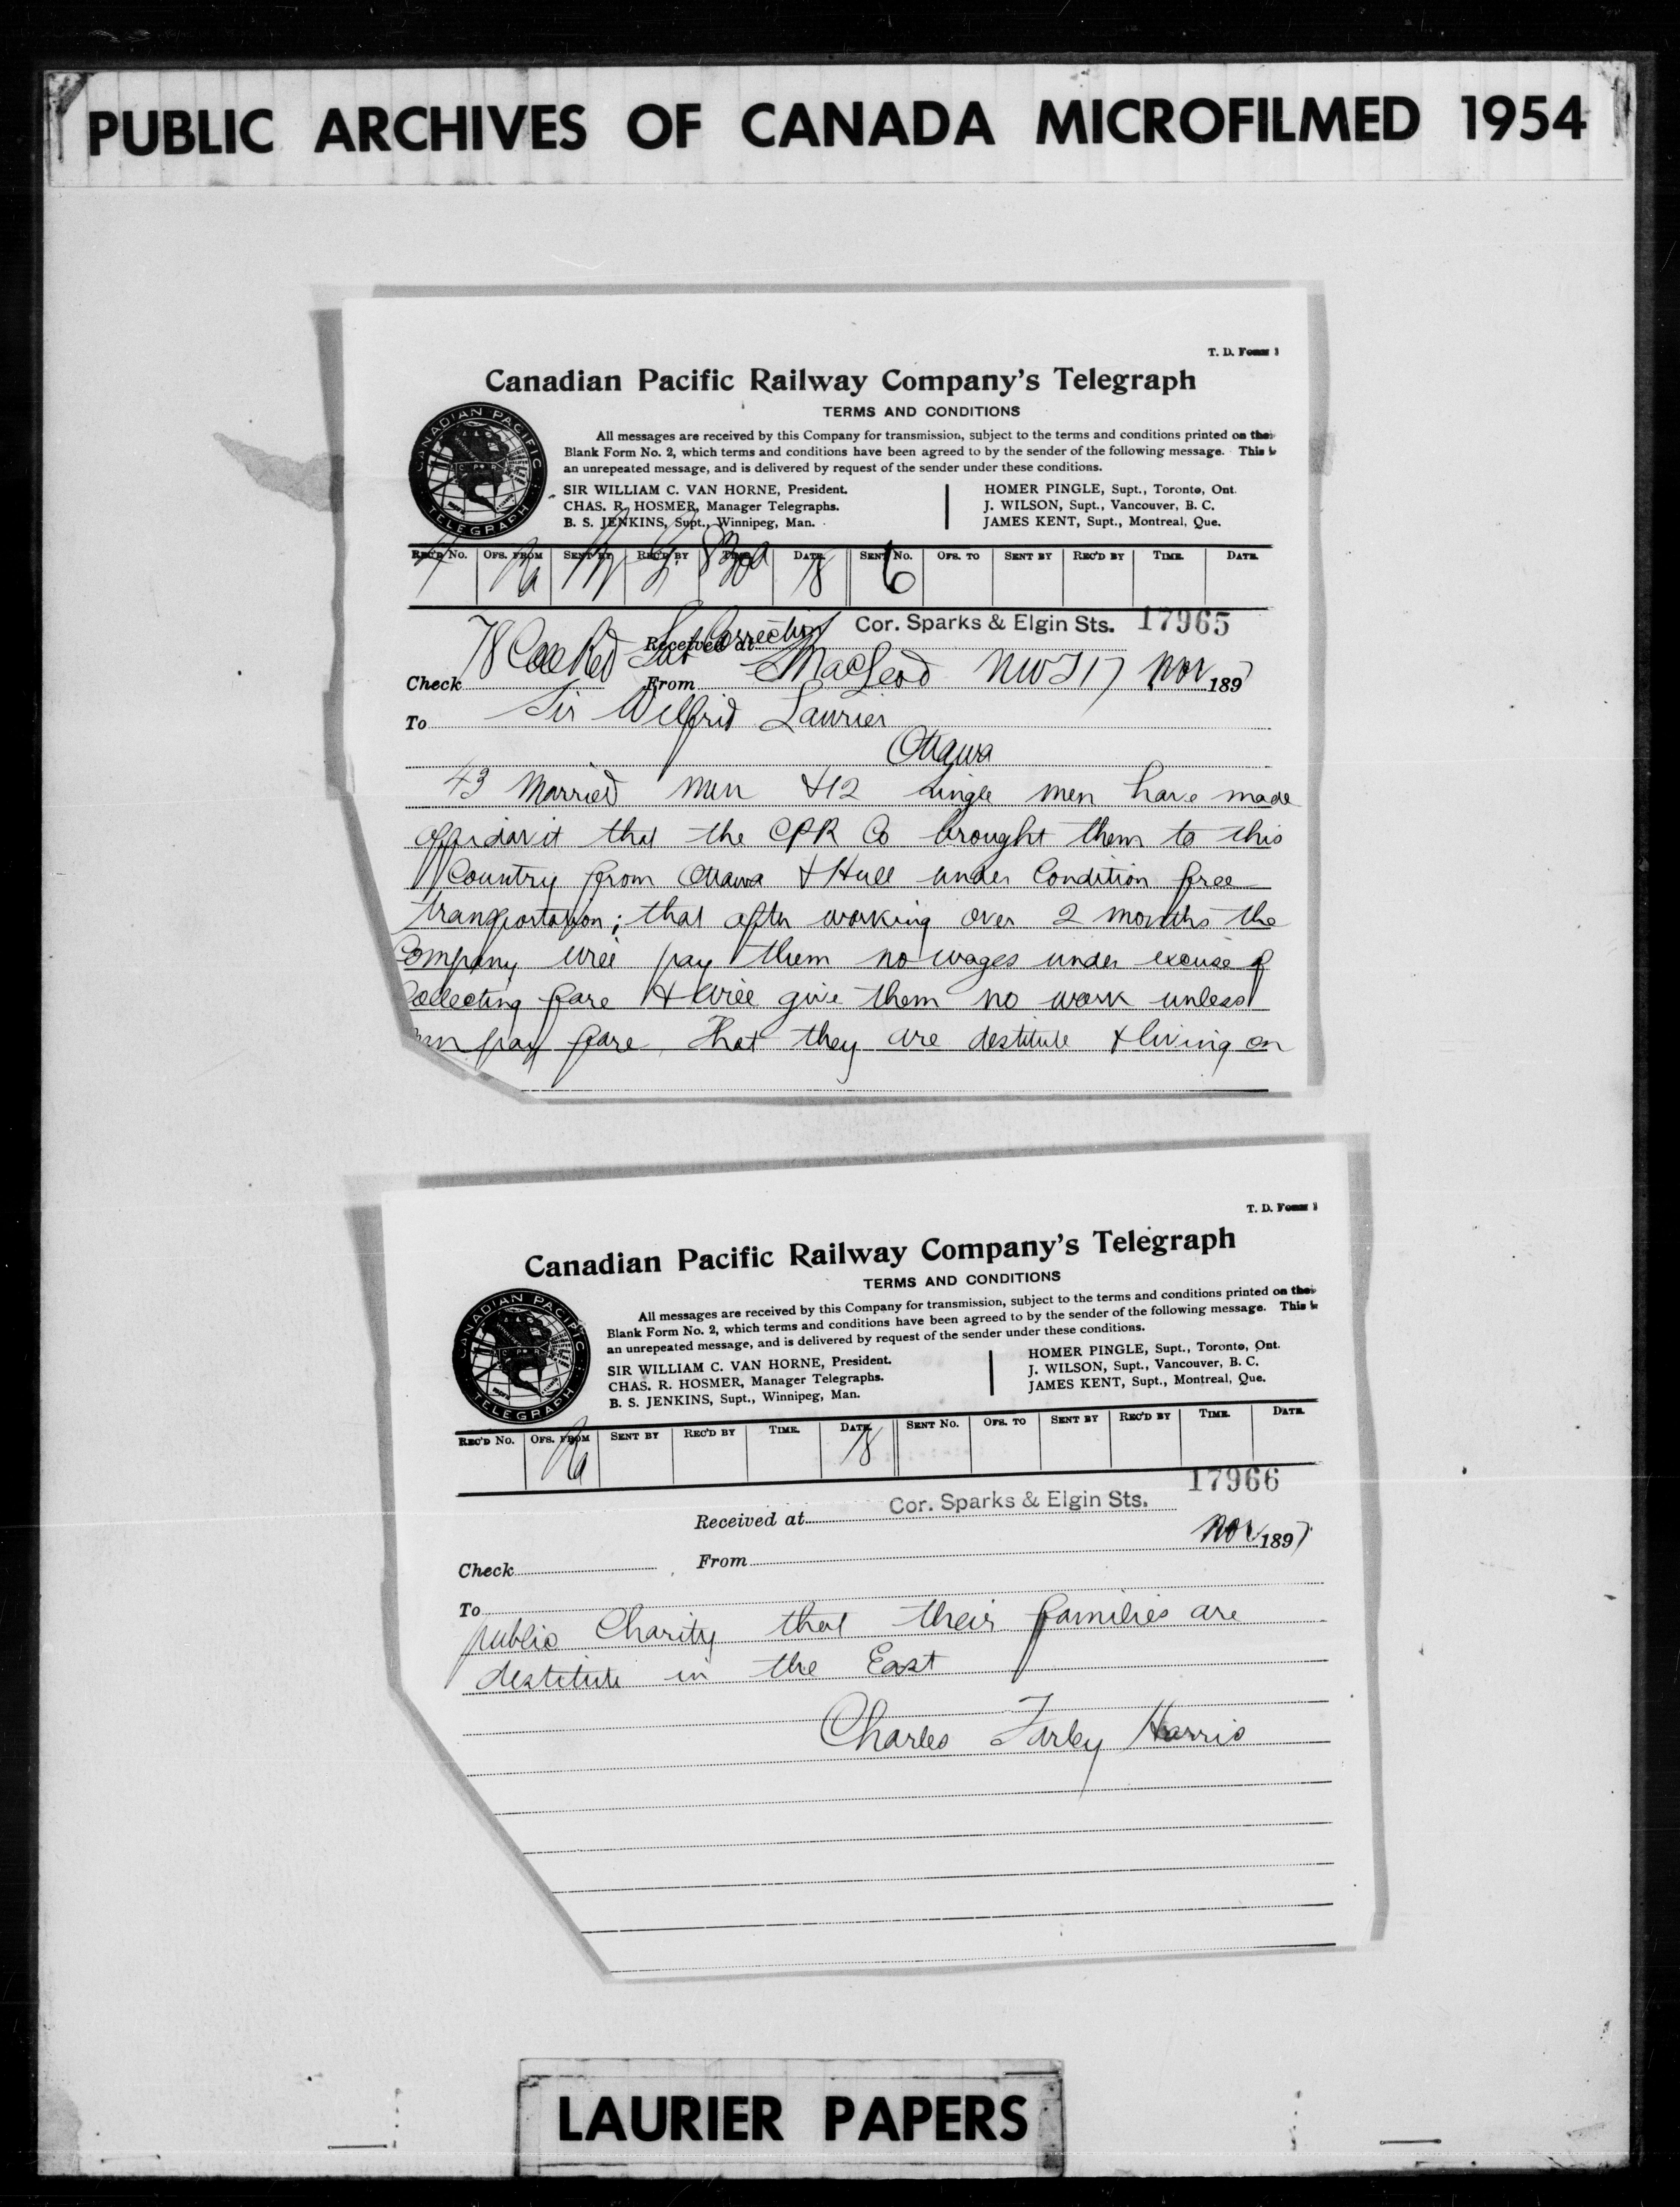 PUBLIC ARCHIVES OF CANADA MICROFILMED 1954
T. D. Form 1
Canadian Pacific Railway Company's Telegraph
TERMS AND CONDITIONS
All messages are received by this Company for transmission, subject to the terms and conditions printed on their
Blank Form No. 2, which terms and conditions have been agreed to by the sender of the following message. This is
an unrepeated message, and is delivered by request of the sender under these conditions.
SIR WILLIAM C. VAN HORNE, President.
CHAS. R. HOSMER, Manager Telegraphs.
B. S. JENKINS, Supt., Winnipeg, Man.
HOMER PINGLE, Supt., Toronto, Ont.
J. WILSON, Supt., Vancouver, B. C.
JAMES KENT, Supt., Montreal, Que.
CANADIAN PACIFIC TELEGRAPH
REC'D No. OFS. FROM SENT BY REC'D BY TIME. DATE. SENT No. OFS. TO SENT BY REC'D BY TIME. DATE.
Ra 18 6
Received at Cor. Sparks & Elgin Sts. 17965
Correction
Check 78 Collect From MacLeod NWT 17 Nov 1897
To Sir Wilfrid Laurier
Ottawa
43 Married men & 12 single men have made
affidavit that the CPR Co brought them to this
Country from Ottawa & Hull under Condition free
transportation; that after working over 2 months the
Company will pay them no wages under excuse of
Collecting fare & will give them no work unless
men pay fare, that they are destitute & living on
T. D. Form 1
Canadian Pacific Railway Company's Telegraph
TERMS AND CONDITIONS
All messages are received by this Company for transmission, subject to the terms and conditions printed on their
Blank Form No. 2, which terms and conditions have been agreed to by the sender of the following message. This is
an unrepeated message, and is delivered by request of the sender under these conditions.
SIR WILLIAM C. VAN HORNE, President.
CHAS. R. HOSMER, Manager Telegraphs.
B. S. JENKINS, Supt., Winnipeg, Man.
HOMER PINGLE, Supt., Toronto, Ont.
J. WILSON, Supt., Vancouver, B. C.
JAMES KENT, Supt., Montreal, Que.
CANADIAN PACIFIC TELEGRAPH
REC'D No. OFS. FROM SENT BY REC'D BY TIME. DATE. SENT No. OFS. TO SENT BY REC'D BY TIME. DATE.
Ra 18
17966
Received at Cor. Sparks & Elgin Sts.
Check From Nov 1897
To
public Charity that their families are
destitute in the East
Charles Farley Harris
LAURIER PAPERS